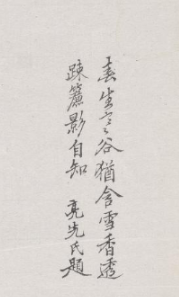 春生空谷猶含雪香透
疎簾影自知 亮先氏題